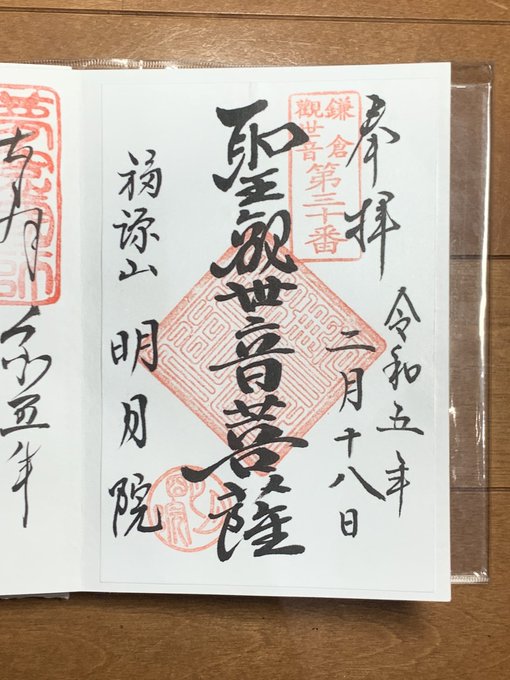 奉拝
令和五年
二月十八日
鎌倉
観世音
第三十番
聖観世音菩薩
福源山 明月院
五年